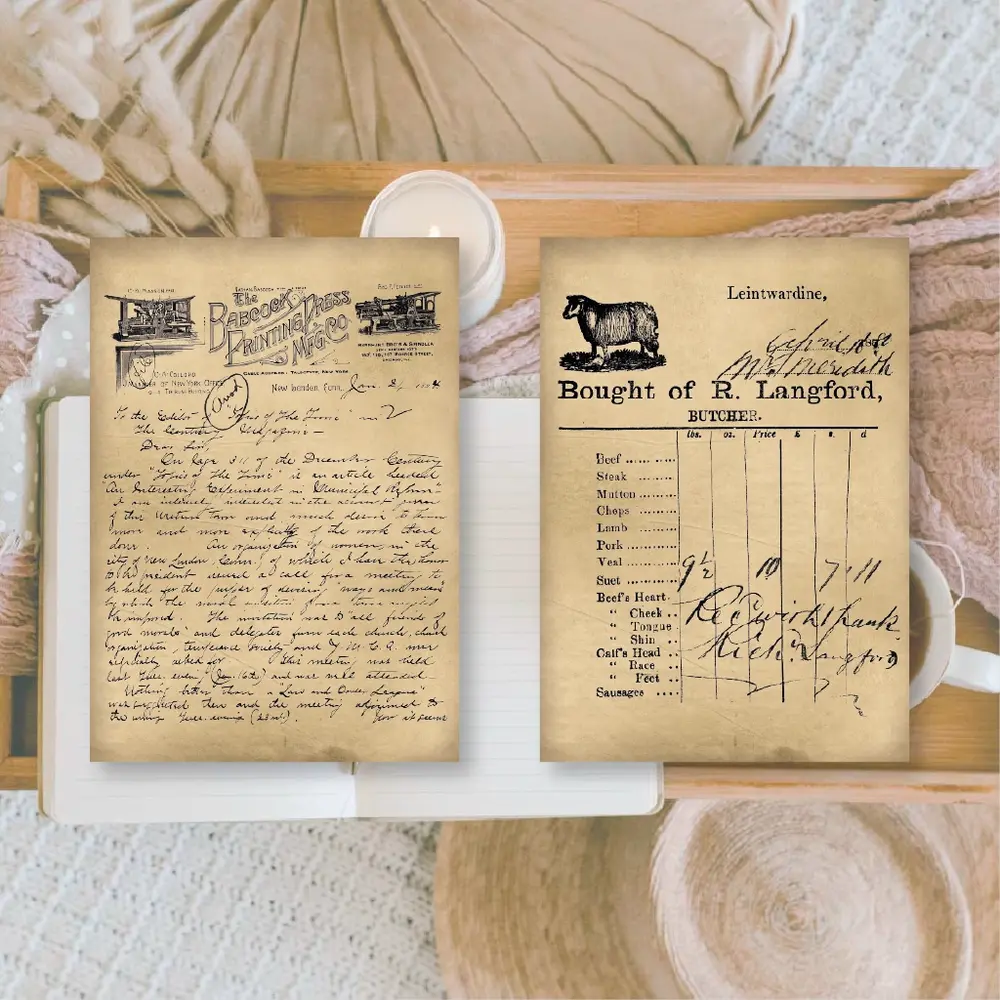 The
BABCOCK
PRINTING PRESS
MF'G CO
MANAGER OF NEW YORK OFFICE
9 & 11 TRIBUNE BUILDING
New London, Conn., Jan. 1884
To the Editor "Topics of the Time" in
The Century Magazine—
Dear Sir,
On Page 311 of the December Century
under "Topics of the Time" is an article headed
"An Interesting Experiment in Municipal Reform"
I am interested in the account given
of this and much desire to know
more and more explicitly of the work there
done. An organization of women in the
city of New London, Conn. of which I have the honor
to be president issued a call for a meeting to
be held for the purpose of devising "ways and means
by which the moral condition of our town might
be improved. The invitation was to "all friends of
good morals" and delegates from each church,
organization, temperance society and Y.M.C.A. were
especially asked for. This meeting was held
last Tues. evening (Jan. 16th) and was well attended.
Nothing better than a "Law and Order League"
was suggested then and the meeting adjourned to
the coming Tues. evening (23rd). Now it seems
Leintwardine,
April
Mr. Meredith
Bought of R. Langford,
BUTCHER.
lbs. oz. Price £ s. d
Beef
Steak
Mutton
Chops
Lamb
Pork
Veal
Suet 9½ 10 7 11
Beef's Heart.
" Cheek
" Tongue
" Shin
Calf's Head
" Race
" Feet
Sausages
Rec'd with thanks
Rich'd Langford